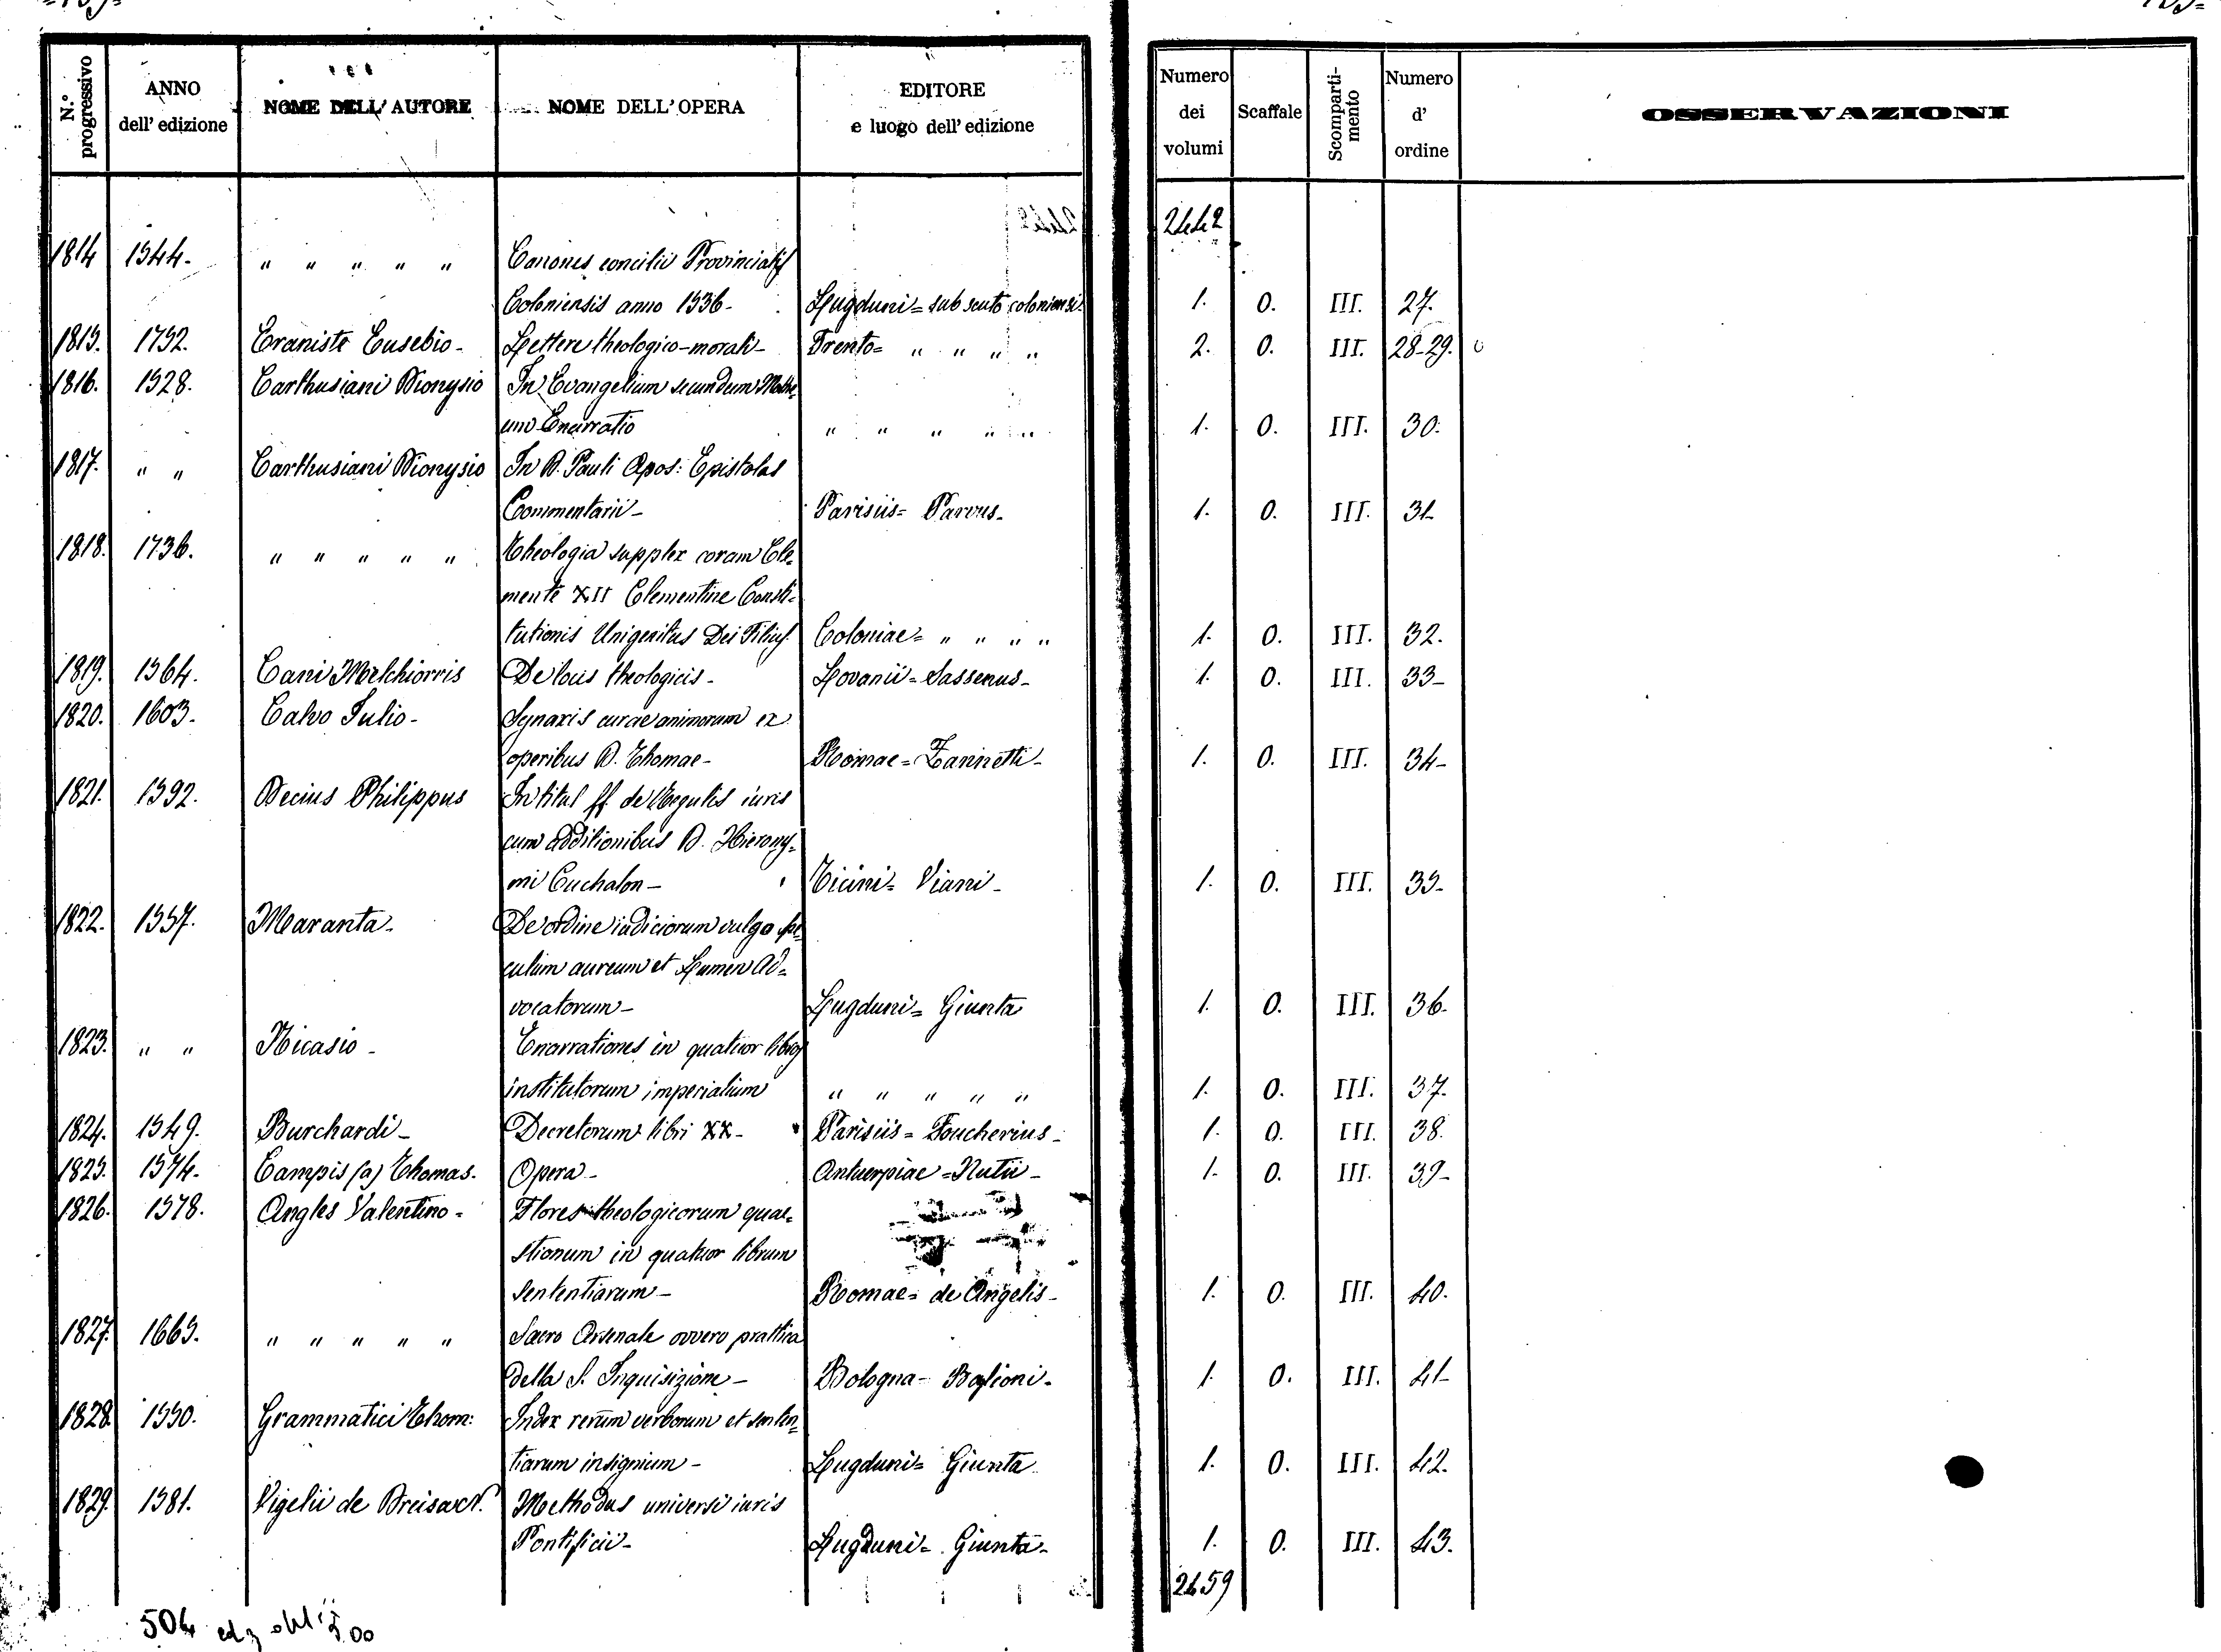 N.° progressivo | ANNO dell' edizione | NOME DELL' AUTORE | NOME DELL' OPERA | EDITORE e luogo dell' edizione | Numero dei volumi | Scaffale | Scomparti-mento | Numero d' ordine | OSSERVAZIONI
2442
1814 1544. " " " " " Canones concilii Provincialis
Coloniensis anno 1536- Lugduni= sub scuto coloniensi- 1. O. III. 27.
1815. 1752. Eraniste Eusebio- Lettere theologico-morali- Trento= " " " " 2. O. III. 28-29.
1816. 1528. Carthusiani Dionysio In Evangelium secundum Matthe=
um Enarratio " " " " " 1. O. III. 30.
1817. " " Carthusiani Dionysio In D. Pauli Apos: Epistolas
Commentarii- Parisiis= Parvus- 1. O. III. 31-
1818. 1736. " " " " " Theologia supplex coram Cle=
mente XII Clementine Consti=
tutionis Unigenitus Dei Filius. Coloniae= " " " " 1. O. III. 32.
1819. 1564. Cani Melchiorris De locis theologicis- Lovanii= Sassenus- 1. O. III. 33-
1820. 1603. Calvo Julio- Synaxis curae animorum ex
operibus D. Thomae- Romae= Zannetti- 1. O. III. 34-
1821. 1592. Decius Philippus In titul ff de Regulis iuris
cum additionibus D. Hierony=
mi Cuchalon- Ticini= Viani- 1. O. III. 35-
1822. 1557. Maranta- De ordine iudiciorum vulgo spe=
culum aureum et Lumen Ad=
vocatorum- Lugduni= Giunta 1. O. III. 36-
1823. " " Nicasio- Enarrationes in quatuor libros
institutorum imperialium " " " " " 1. O. III. 37.
1824. 1549. Burchardi- Decretorum libri XX- Parisiis= Foucherius- 1. O. III. 38.
1825. 1574. Campis (a) Thomas. Opera- Antuerpiae= Nutii- 1. O. III. 39-
1826. 1578. Angles Valentino- Flores theologicorum quae=
stionum in quatuor librum
sententiarum- Romae= de Angelis- 1. O. III. 40.
1827. 1665. " " " " " Sacro Arsenale ovvero prattica
della S. Inquisizione- Bologna- Baglioni- 1. O. III. 41-
1828. 1550. Grammatici Thom: Index rerum verborum et senten=
tiarum insignium- Lugduni= Giunta 1. O. III. 42.
1829. 1581. Vigelii de Breisach. Methodus universi iuris
Pontificii- Lugduni= Giunta- 1. O. III. 43.
2459
504
500